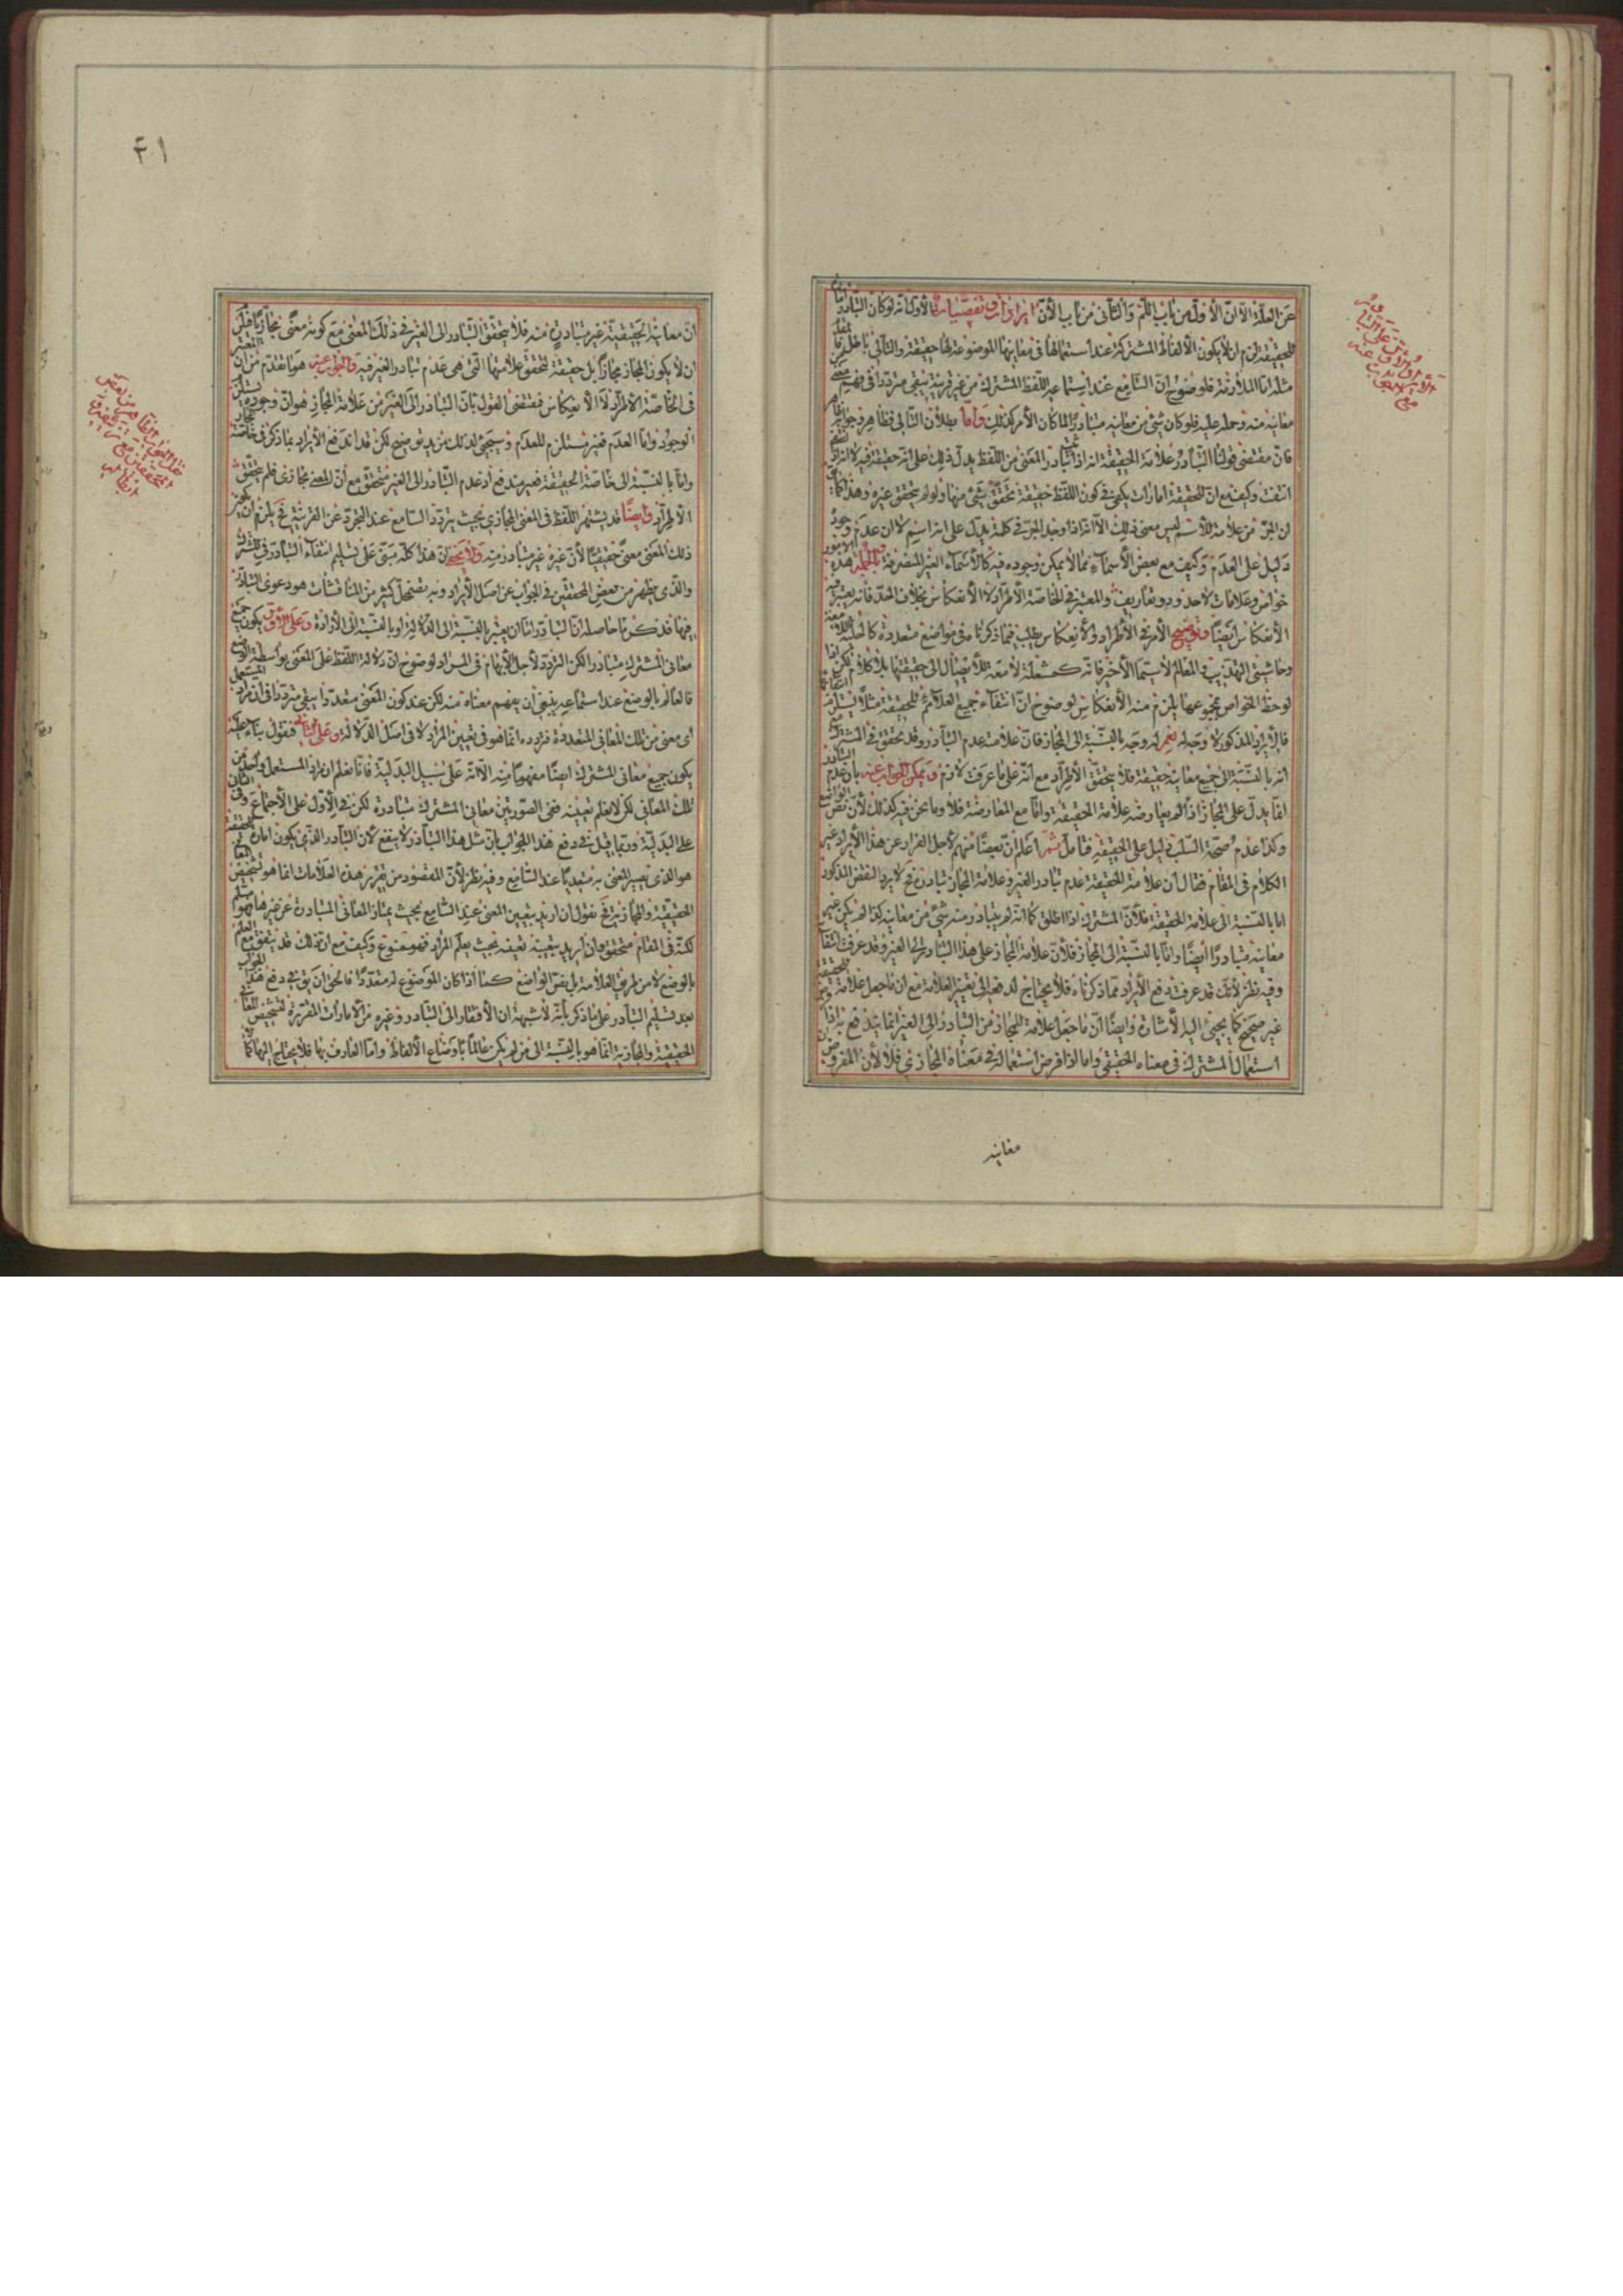 عن العلّة الا انّ الاوّل من باب اللّم والثانى من باب الأنّ ايرادات وتفصّيات الأوّل انّه لو كان التبادر
للحقيقة لزم ان لا يكون الألفاظ المشتركة عند استعمالها فى معانيها الموضوعة لها حقيقة والتالى باطل
مثله امّا الملازمة فلوضوح انّ السّامع عند استماعه اللفظ المشترك من غير قرينة يبقى مترددا فى فهم
معانيه منه وحمله عليه فلو كان شئ من معانيه متبادرا لما كان الأمر كذلك وامّا بطلان التّالى فظاهر
فانّ مقتضى قولنا التّبادر علامة الحقيقة انه اذا تبادر المعنى من اللفظ يدلّ ذلك على انّه حقيقة فيه لا انه اذا
انتفت وكيف مع انّ للحقيقة امارات يكفى فى كون اللّفظ حقيقة تحقّق شئ منها ولو لم يتحقق غيره وهذا
ان الجرّ من علامة للأسم ليس معنى ذلك الّا انّه اذا وجد الجرّ فى كلمة يدلّ على انها اسم لا ان عدم وجوده
دليل على العدم وكيف مع بعض الأسماء ممّا لا يمكن وجوده فيه كالأسماء الغير المنصرفة وبالجملة هذه
خواص وعلامات لا حدود وتعاريف والمعتبر فى الخاصّة الأطراد لا الأنعكاس بخلاف الحدّ فانه يعتبر فيه
الأنعكاس ايضا وتوضيح الأمر فى الأطراد والأنعكاس يطلب ممّا ذكرنا فى مواضع متعددة
وحاشيتى التهذيب والمعالم لا سيّما الأخير فانّه كمشعلة لامعة
لوحظ الخواص مجموعها يلزم منه الأنعكاس لوضوح انّ انتفاء جميع العلائم للحقيقة مثلا يستلزم
فالأيراد المذكور لا وجه له نعم له وجه بالنّسبة الى المجاز فانّ علامته عدم التّبادر وقد تحقق فى المشترك
انه بالنّسبة الى جميع معانيه حقيقة فلا يتحقّق الأطراد مع انّه على ما عرفت لازم ويمكن الجواب عنه بان عدم
انما يدلّ على المجاز اذا لم يعارضه علامة الحقيقة وامّا مع المعارضة فلا وما نحن فيه كذلك لأنّ نصّ
وكذا عدم صحّة السّلب دليل على الحقيقة فتأمل ثمّ اعلم انّ بعضا منهم لأجل الفرار عن هذا الأيراد غيّر
الكلام فى المقام فقال انّ علامة الحقيقة عدم تبادر الغير وعلامة المجاز تبادره فح لا يرد النقض المذكور
اما بالنّسبة الى علامة الحقيقة فلأنّ المشترك اذا اطلق كما انّه لم يتبادر منه شئ من معانيه كذا لم يكن غير
معانيه متبادرا ايضا وامّا بالنّسبة الى المجاز فلأنّ علامة المجاز على هذا التبادر الى الغير وقد عرفت
وفيه نظر لأنّك قد عرفت دفع الأيراد ممّا ذكرناه فلا يحتاج لدفعه الى تغيير العلامة مع ان ما جعل علامة
غير صحيح كما يجئ اليه الأشارة وايضا انّ ما جعل علامة للمجاز من التبادر الى الغير انما يندفع به
استعمال المشترك فى معناه الحقيقى واما اذا فرض استعماله فى معناه المجازى فلا لأن المفروض
معانيه
انّ معانيه الحقيقيّة غير متبادرة منه فلا يتحقّق التبادر الى الغير فى ذلك المعنى مع كونه معنى مجازيا
ان لا يكون المجاز مجازا بل حقيقة لتحقّق علامتها الّتى هى عدم تبادر الغير فيه والجواب عنه هو ما تقدّم من ان
فى الخاصّة الأطراد لا الأنعكاس فمقتضى القول بانّ التبادر الى الغير من علامة المجاز هو انّ وجوده
الوجود وامّا العدم فغير مستلزم للعدم وسيجئ لذلك مزيد توضيح لكن قد اندفع الأيراد بما ذكر فى خاصّة
وامّا بالنّسبة الى خاصّة الحقيقة فغير مندفع اذ عدم التّبادر الى الغير متحقّق مع انّ المعنى مجازى فلم يتحقّق
الأطراد وايضا قد يشتهر اللّفظ فى المعنى المجازى بحيث يتردّد السّامع عند التجرّد عن القرينة فح يلزم ان يكون
ذلك المعنى معنى حقيقيّا لأنّ غيره غير متبادر منه ولا يخفى انّ هذا كلّه مبنى على تسليم انتفاء التبادر فى المشترك
والّذى يظهر من بعض المحققين فى الجواب عن اصل الأيراد وبه يضمحل كثير من المناقشات هو دعوى التبادر
فيها فذكر ما حاصله انّ التبادر امّا ان يعتبر بالنّسبة الى الدّلالة او بالنّسبة الى الأرادة وعلى الاوّل يكون جميع
معانى المشترك متبادرا لكن التردّد لأجل الأبهام فى المراد لوضوح انّ دلالة اللّفظ على المعنى بواسطة الوضع
فالعالم بالوضع عند استماعه ينبغى ان يفهم معناه منه لكن عند كون المعنى متعدّدا يبقى متردّدا فى ان مراد المستعمل
اى معنى من تلك المعانى المتعدّدة فتردّده انّما هو فى تعيين المراد لا فى اصل الدّلالة وعلى الثّانى فنقول
يكون جميع معانى المشترك ايضا مفهوما منه الّا انّه على سبيل البدليّة فانّا نعلم ان مراد المستعمل واحد من
تلك المعانى لكن لا نعلم بعينه ففى الصّورتين معانى المشترك متبادرة لكن فى الأوّل على الأجتماع وفى الثانى
على البدليّة وربّما قيل فى دفع هذا الجواب بانّ مثل هذا التبادر لا ينفع لأن التبادر الذى يكون امارة الحقيقة
هو الذى يصير المعنى به متعيّنا عند السّامع وفيه نظر لأنّ المقصود من تقرير هذه العلامات انما هو تشخيص
الحقيقيّة والمجازية فح نقول ان اريد بتعيين المعنى عند السّامع بحيث يمتاز المعانى المتبادرة عن غيرها فهو مسلم
لكنّه فى المقام متحقّق وان اريد بتعيينه تعيينه بحيث يعلم المراد فهو ممنوع وكيف مع ان ذلك قد يتفق مع العلم
بالوضع لا من طريق العلامة بل بنصّ الواضع كما اذا كان الموضوع له متعدّدا فالحق ان يق فى دفع هذا الجواب
بعد تسليم التبادر على ما ذكر بأنّه لا شبهة ان الأفتقار الى التّبادر وغيره من الأمارات المقرّرة لتشخيص المعانى
الحقيقة والمجازية انّما هو بالنّسبة الى من لم يكن عالما باوضاع الألفاظ وامّا العارف بها فلا يحتاج اليها